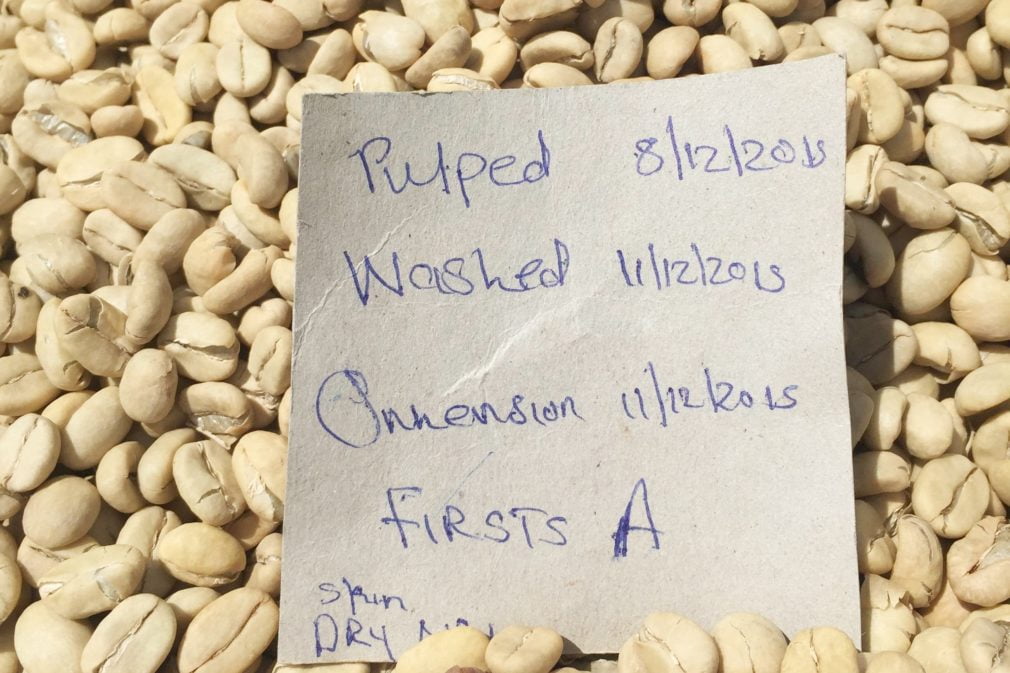 Pulped 8/12/2015
Washed 11/12/2015
Immension 11/12/2015
FIRSTS A
Skin
DRY